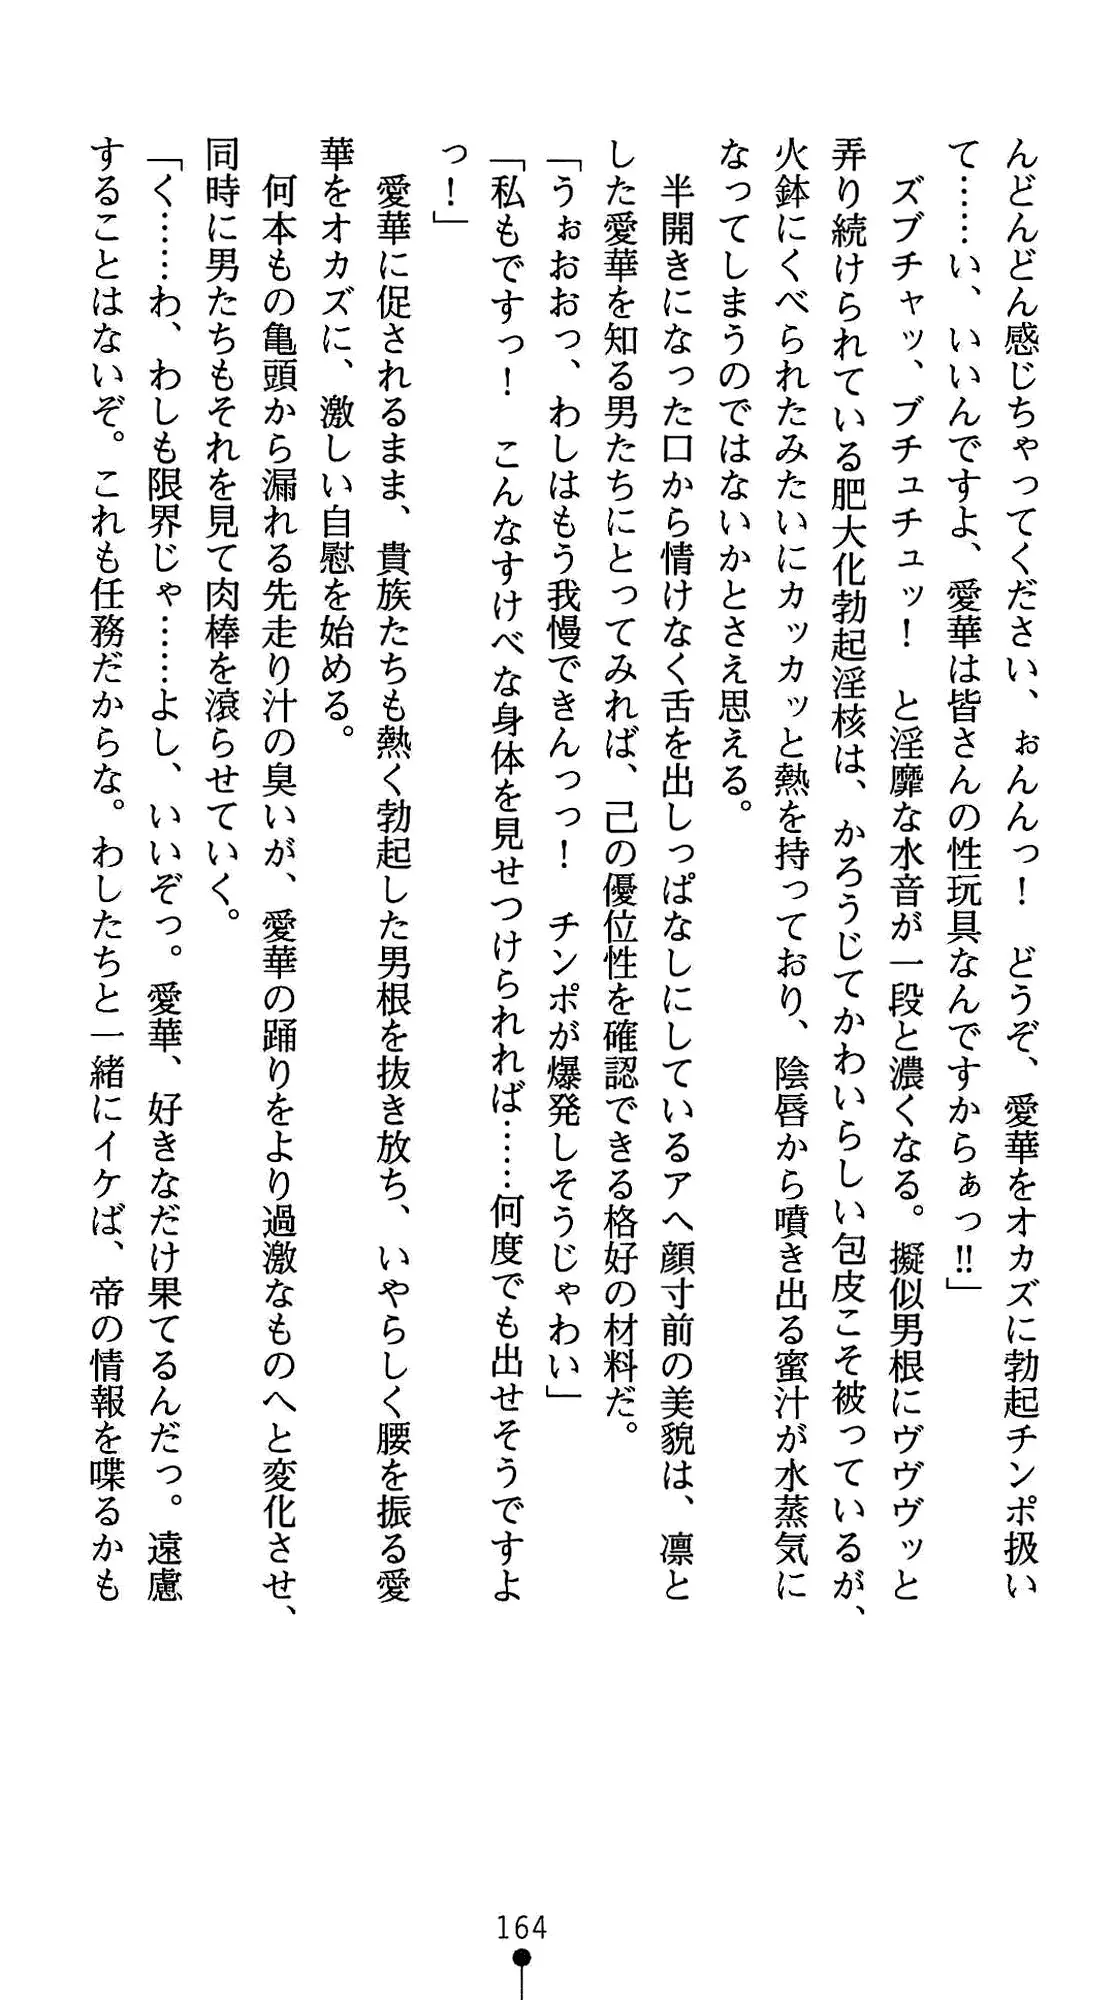 んどんどん感じちゃってください、ぉんんっ！　どうぞ、愛華をオカズに勃起チンポ扱い
て……い、いいんですよ、愛華は皆さんの性玩具なんですからぁっ‼」
　ズブチャッ、ブチュチュッ！　と淫靡な水音が一段と濃くなる。擬似男根にヴヴヴッと
弄り続けられている肥大化勃起淫核は、かろうじてかわいらしい包皮こそ被っているが、
火鉢にくべられたみたいにカッカッと熱を持っており、陰唇から噴き出る蜜汁が水蒸気に
なってしまうのではないかとさえ思える。
　半開きになった口から情けなく舌を出しっぱなしにしているアヘ顔寸前の美貌は、凛と
した愛華を知る男たちにとってみれば、己の優位性を確認できる格好の材料だ。
「うぉおおっ、わしはもう我慢できんっっ！　チンポが爆発しそうじゃわい」
「私もですっ！　こんなすけべな身体を見せつけられれば……何度でも出せそうですよ
っ！」
　愛華に促されるまま、貴族たちも熱く勃起した男根を抜き放ち、いやらしく腰を振る愛
華をオカズに、激しい自慰を始める。
　何本もの亀頭から漏れる先走り汁の臭いが、愛華の踊りをより過激なものへと変化させ、
同時に男たちもそれを見て肉棒を滾らせていく。
「く……わ、わしも限界じゃ……よし、いいぞっ。愛華、好きなだけ果てるんだっ。遠慮
することはないぞ。これも任務だからな。わしたちと一緒にイケば、帝の情報を喋るかも
164